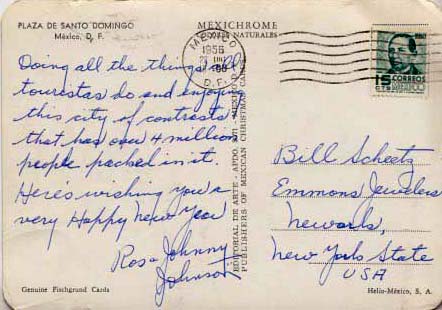 PLAZA DE SANTO DOMINGO
México, D. F.
MEXICHROME
COLORES NATURALES
MEXICO
1956
D. F.
15 CORREOS
MEXICO
Doing all the things all
tourestas do and enjoying
this city of contrasts
that has over 4 million
people packed in it.
Here's wishing you a
very Happy New Year
Rosa Johnny
Johnson
EDITORIAL DE ARTE - APDO. 1071 - MEXICO D. F.
PUBLISHERS OF MEXICAN CHRISTMAS CARDS
Bill Scheetz
Emmons Jewelers
Newark,
New York State
USA
Genuine Fischgrund Cards
Helio-México, S. A.